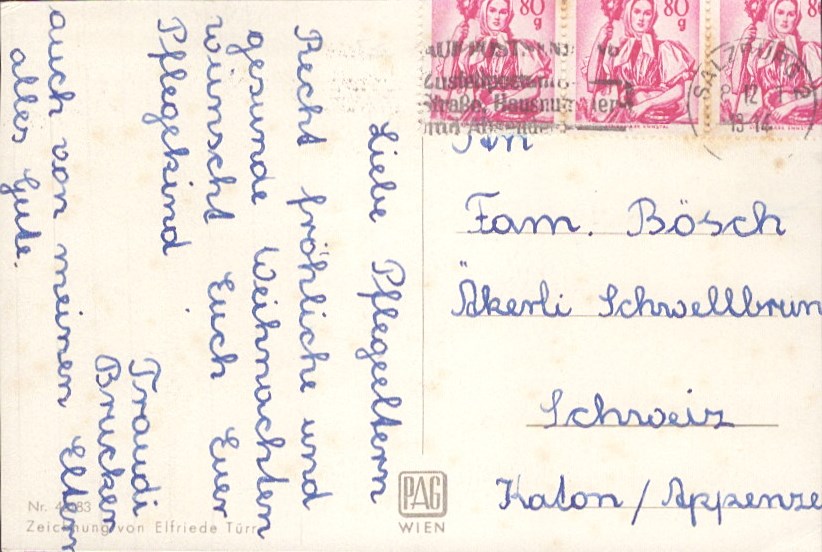 Liebe Pflegeeltern
Recht fröhliche und
gesunde Weihnachten
wünscht Euch Euer
Pflegekind
Traudi
Brucker
auch von meinen Eltern
alles Gute.
80
g
80
g
80
g
Straße, Hausnummer
SALZBURG 2
12
13-14
An
Fam. Bösch
Äkerli Schwellbrun
Schweiz
Katon / Appenze
Nr. 4683
Zeichnung von Elfriede Türr
PAG
WIEN